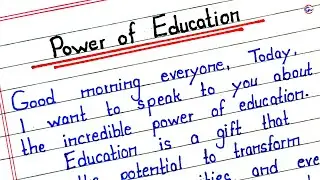 Power of Education
Good morning everyone, Today,
I want to speak to you about
the incredible power of education.
Education is a gift that
the potential to transform
and eve